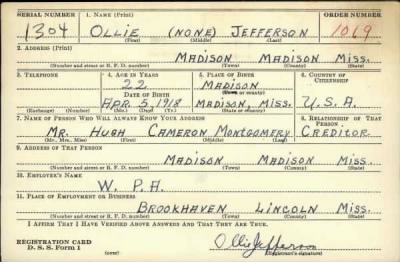 SERIAL NUMBER 1. NAME (Print) ORDER NUMBER
1304 OLLIE (NONE) JEFFERSON 1069
(First) (Middle) (Last)
2. ADDRESS (Print)
MADISON MADISON MISS.
(Number and street or R. F. D. number) (Town) (County) (State)
3. TELEPHONE 4. AGE IN YEARS 5. PLACE OF BIRTH 6. COUNTRY OF CITIZENSHIP
22 MADISON
DATE OF BIRTH (Town or county)
APR. 5, 1918 MADISON, MISS. U.S.A.
(Exchange) (Number) (Mo.) (Day) (Yr.) (State or country)
7. NAME OF PERSON WHO WILL ALWAYS KNOW YOUR ADDRESS 8. RELATIONSHIP OF THAT PERSON
MR. HUGH CAMERON MONTGOMERY CREDITOR
(Mr., Mrs., Miss) (First) (Middle) (Last)
9. ADDRESS OF THAT PERSON
MADISON MADISON MISS.
(Number and street or R. F. D. number) (Town) (County) (State)
10. EMPLOYER'S NAME
W. P. A.
11. PLACE OF EMPLOYMENT OR BUSINESS
BROOKHAVEN LINCOLN MISS.
(Number and street or R. F. D. number) (Town) (County) (State)
I AFFIRM THAT I HAVE VERIFIED ABOVE ANSWERS AND THAT THEY ARE TRUE.
REGISTRATION CARD
D. S. S. Form 1 Ollie Jefferson
(over) (Registrant's signature)